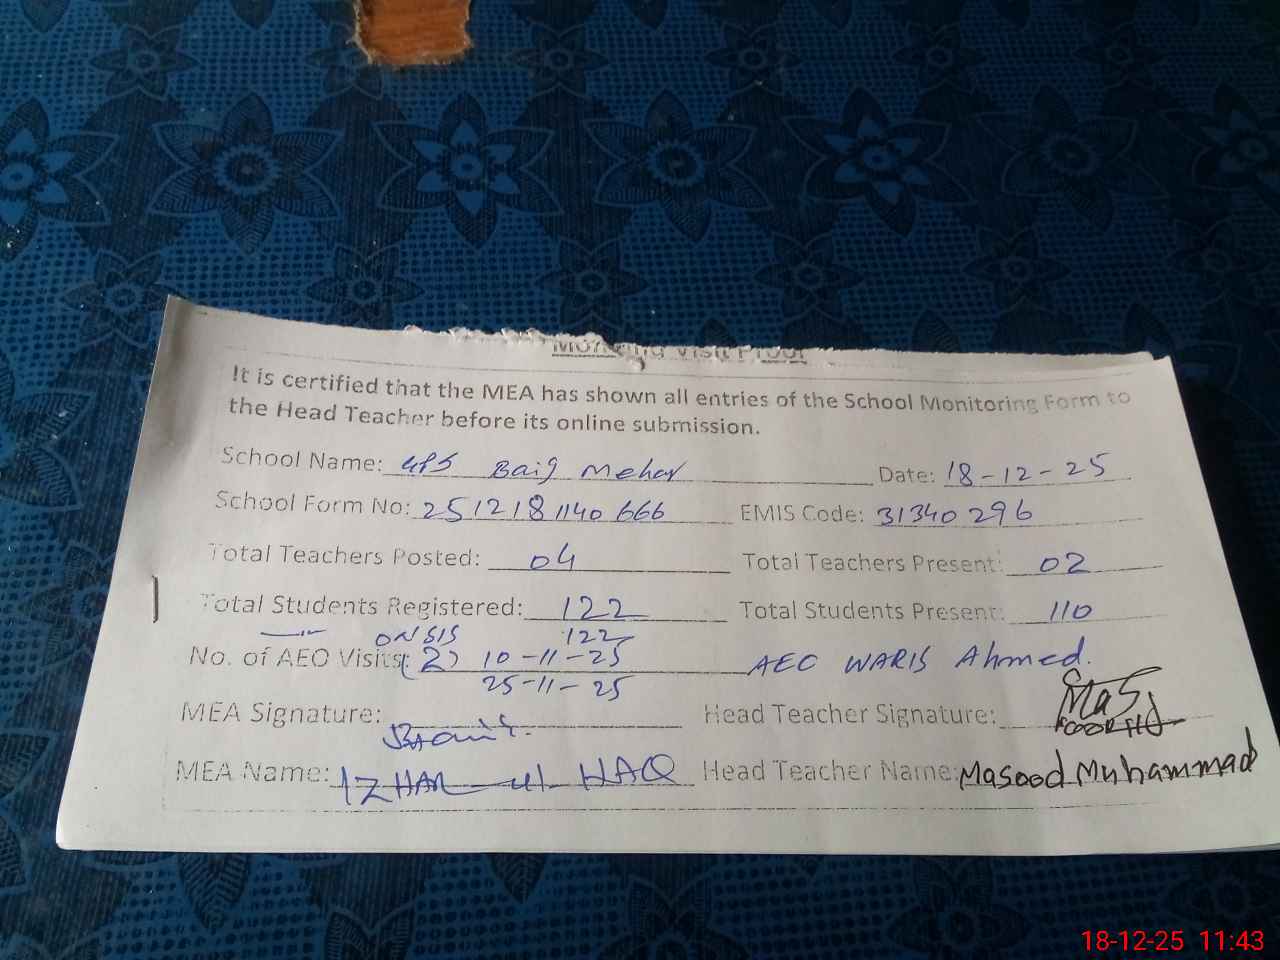 Monitoring Visit Proof
It is certified that the MEA has shown all entries of the School Monitoring Form to
the Head Teacher before its online submission.
School Name: GPS Baig Mehar Date: 18-12-25
School Form No: 251218 1140 666 EMIS Code: 31340296
Total Teachers Posted: 04 Total Teachers Present: 02
Total Students Registered: 122 Total Students Present: 110
ON SIS 122
No. of AEO Visits: (2) 10-11-25 AEO WARIS Ahmed.
25-11-25
MEA Signature: Head Teacher Signature:
MEA Name: IZHAR ul HAQ Head Teacher Name: Masood Muhammad
18-12-25 11:43